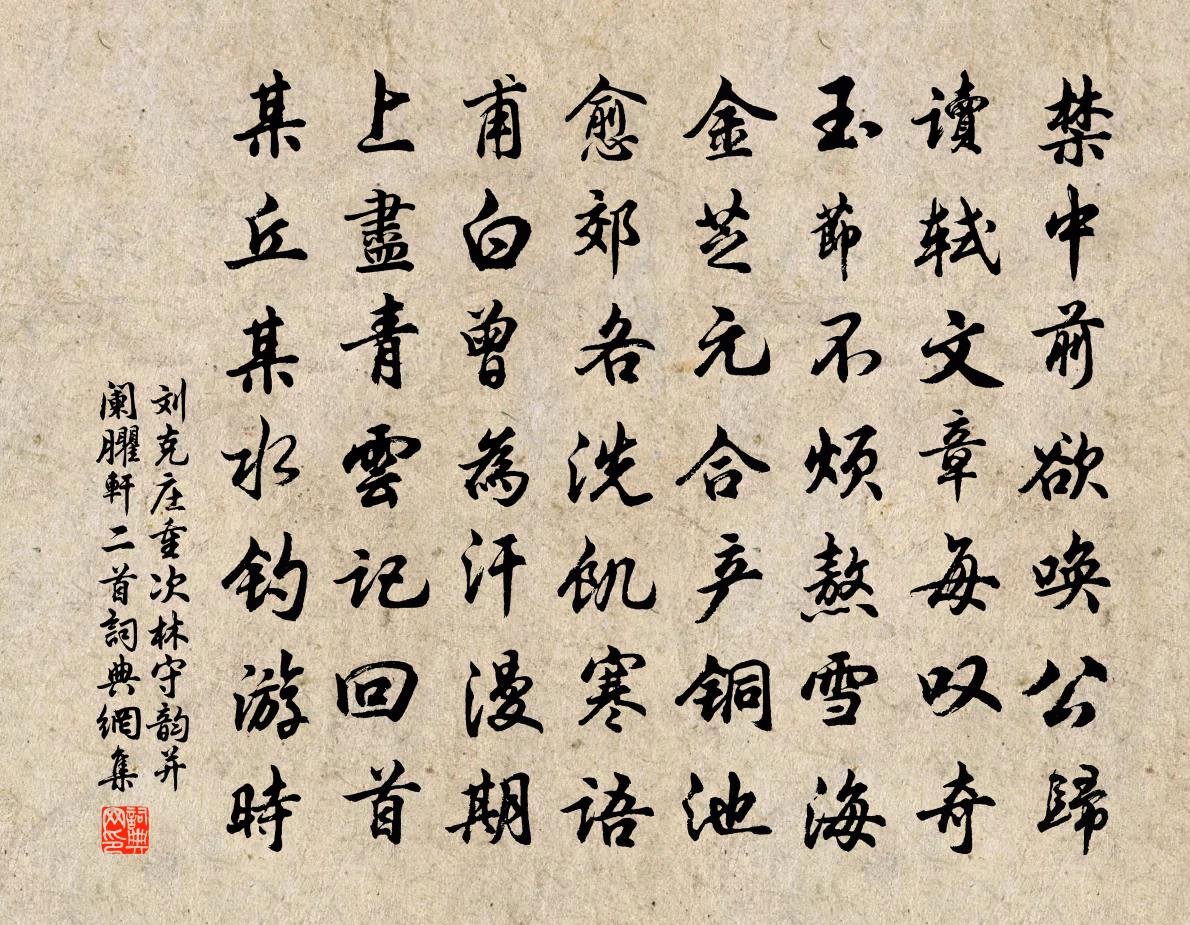 禁中前欲唤公歸
讀軾文章每叹奇
玉節不煩熬雪海
金芝元合产铜池
愈郊各洗飢寒语
甫白曾為汗漫期
上盡青雲記回首
某丘某水钓游時
刘克庄重次林守韵并
阑臞軒二首詞典網集
詞典网印